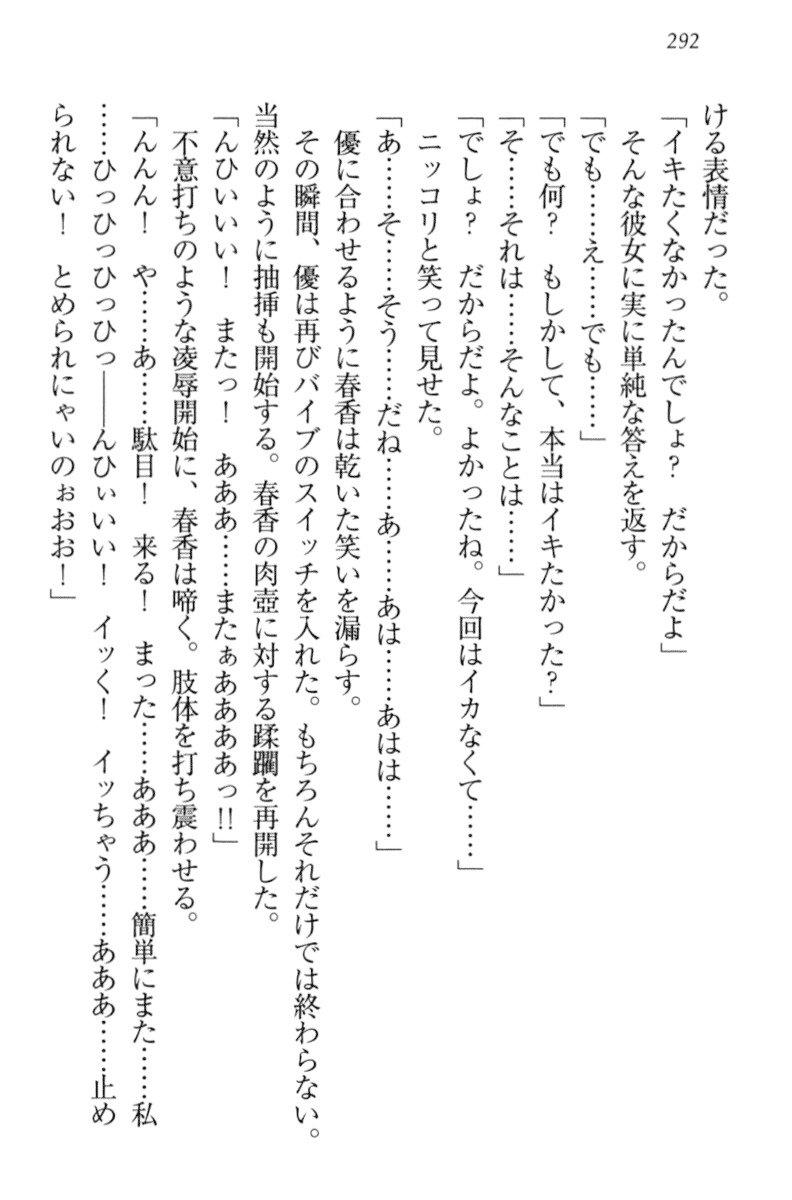 292
ける表情だった。
「イキたくなかったんでしょ？　だからだよ」
そんな彼女に実に単純な答えを返す。
「でも……え……でも……」
「でも何？　もしかして、本当はイキたかった？」
「そ……それは……そんなことは……」
「でしょ？　だからだよ。よかったね。今回はイカなくて……」
ニッコリと笑って見せた。
「あ……そ……そう……だね……あ……あは……あはは……」
優に合わせるように春香は乾いた笑いを漏らす。
その瞬間、優は再びバイブのスイッチを入れた。もちろんそれだけでは終わらない。
当然のように抽挿も開始する。春香の肉壺に対する蹂躙を再開した。
「んひいいい！　またっ！　あああ……またぁああああっ!!」
不意打ちのような凌辱開始に、春香は啼く。肢体を打ち震わせる。
「んんん！　や……あ……駄目！　来る！　まった……あああ……簡単にまた……私
……ひっひっひっひっ――んひぃいい！　イッく！　イッちゃう……あああ……止め
られない！　とめられにゃいのぉおお！」